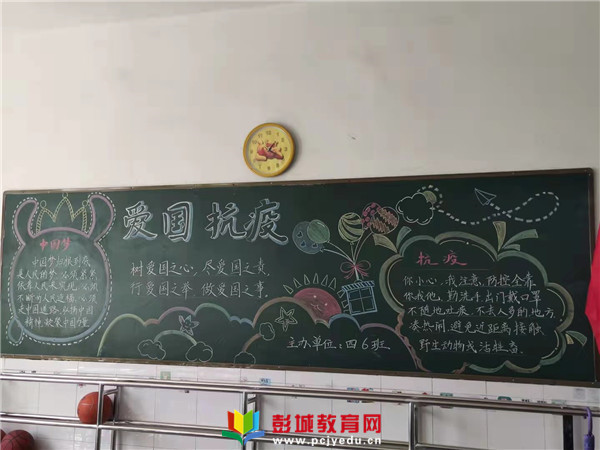 爱国 抗疫
中国梦
中国梦归根到底
是人民的梦,必须紧紧
依靠人民来实现,必须
不断为人民造福,必须
走中国道路,弘扬中国
精神,凝聚中国力量
树爱国之心,尽爱国之责,
行爱国之举,做爱国之事。
主办单位:四6班
抗疫
你小心,我注意,防控全靠
你我他,勤洗手出门戴口罩
不随地吐痰,不去人多的地方
凑热闹,避免近距离接触
野生动物或活牲畜.
彭城教育网
www.pcjyedu.cn